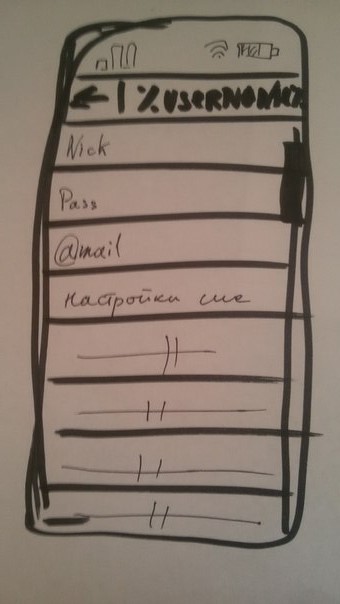 ← | %USERNAME%
Nick
Pass
@mail
настройки
—||—
—||—
—||—
—||—